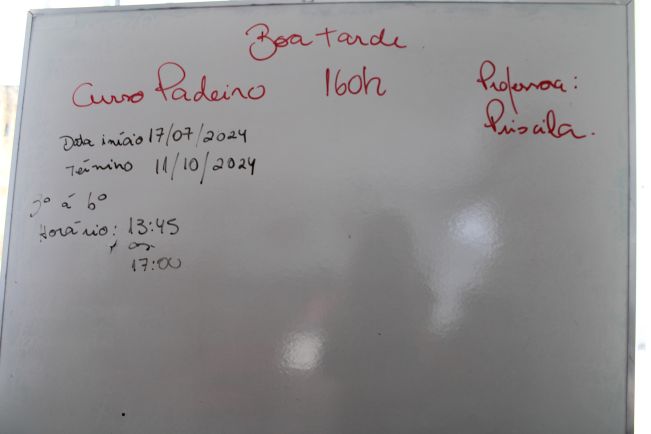 Boa tarde
Curso Padeiro 160h
Professora:
Priscila.
Data início 17/07/2024
Término 11/10/2024
3º á 6º
Horário: 13:45
as
17:00